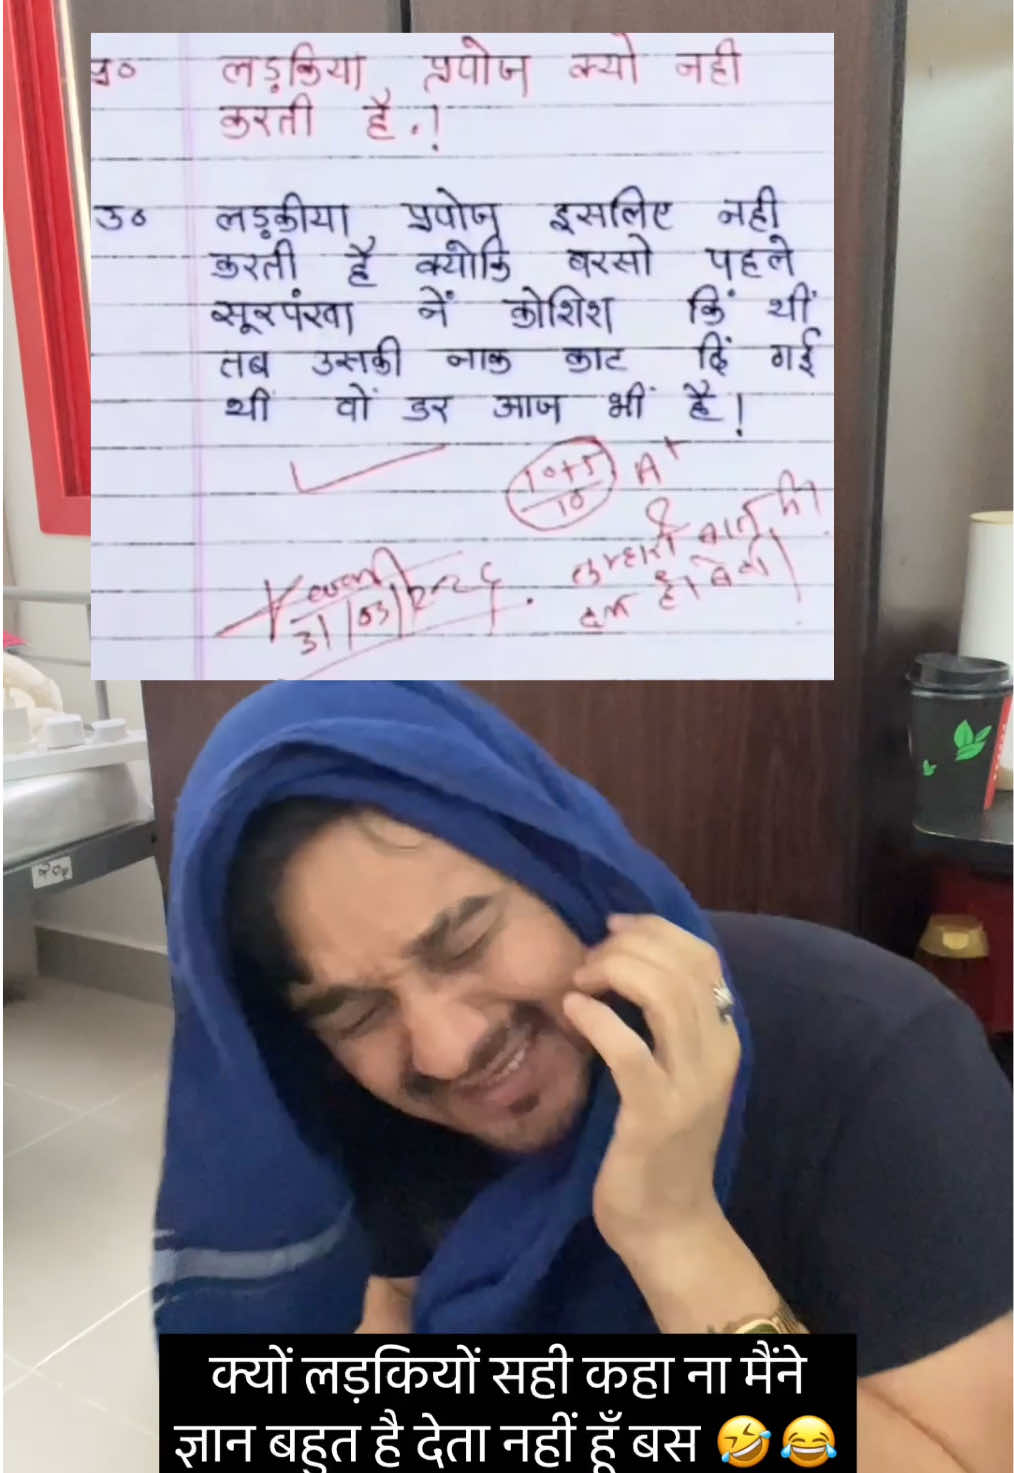 प्र० लड़किया प्रपोज क्यो नही
करती है.!
उ० लड़कीया प्रपोज इसलिए नही
करती है क्योकि बरसो पहले
सूरपंखा नें कोशिश किं थीं
तब उसकी नाक काट दिं गई
थी वों डर आज भीं है!
10+5 A+
10
&
31/03/
क्यों लड़कियों सही कहा ना मैंने
ज्ञान बहुत है देता नहीं हूँ बस 🤣😂